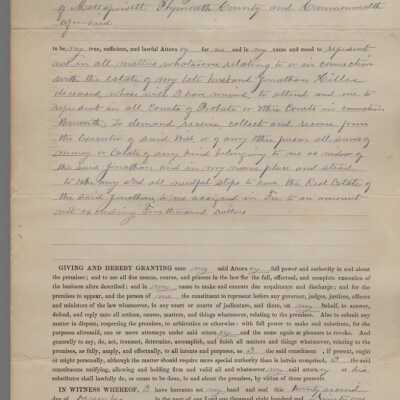 of Mattapoisett Plymouth County and Commonwealth
aforesaid
to be my true, sufficient, and lawful Attorney for me and in my name and stead to represent
act in all matters whatsoever relating to or in connection
with the estate of my late husband Jonathan Hiller
deceased, whose widow I am, to attend and me to
represent in all Courts of Probate or other Courts in connection
therewith. To demand receive collect and recover from
the Executor of said Will or of any other person all sums of
money or Estate of any kind belonging to me as widow of
the said Jonathan and in my name place and stead
to take any and all needful steps to have the Real Estate of
the said Jonathan to me assigned in Fee to an amount
not exceeding Five thousand dollars
GIVING AND HEREBY GRANTING unto my said Attorney full power and authority in and about
the premises; and to use all due means, course, and process in the law for the full, effectual, and complete execution of
the business afore described; and in my name to make and execute due acquittance and discharge; and for the
premises to appear, and the person of me the constituent to represent before any governor, judges, justices, officers
and ministers of the law whatsoever, in any court or courts of judicature, and there, on my Behalf, to answer,
defend, and reply unto all actions, causes, matters, and things whatsoever, relating to the premises. Also to submit any
matter in dispute, respecting the premises, to arbitration or otherwise: with full power to make and substitute, for the
purposes aforesaid, one or more attorneys under said attorney and the same again at pleasure to revoke. And
generally to say, do, act, transact, determine, accomplish, and finish all matters and things whatsoever, relating to the
premises, as fully, amply, and effectually, to all intents and purposes, as I the said constituent, if present, ought
or might personally, although the matter should require more special authority than is herein comprised, I the said
constituent ratifying, allowing and holding firm and valid all and whatsoever my said attorney or his
substitute shall lawfully do, or cause to be done, in and about the premises, by virtue of these presents.
IN WITNESS WHEREOF, I have hereunto set my hand and seal this twenty second
day of December in the year of our Lord one thousand eight hundred and